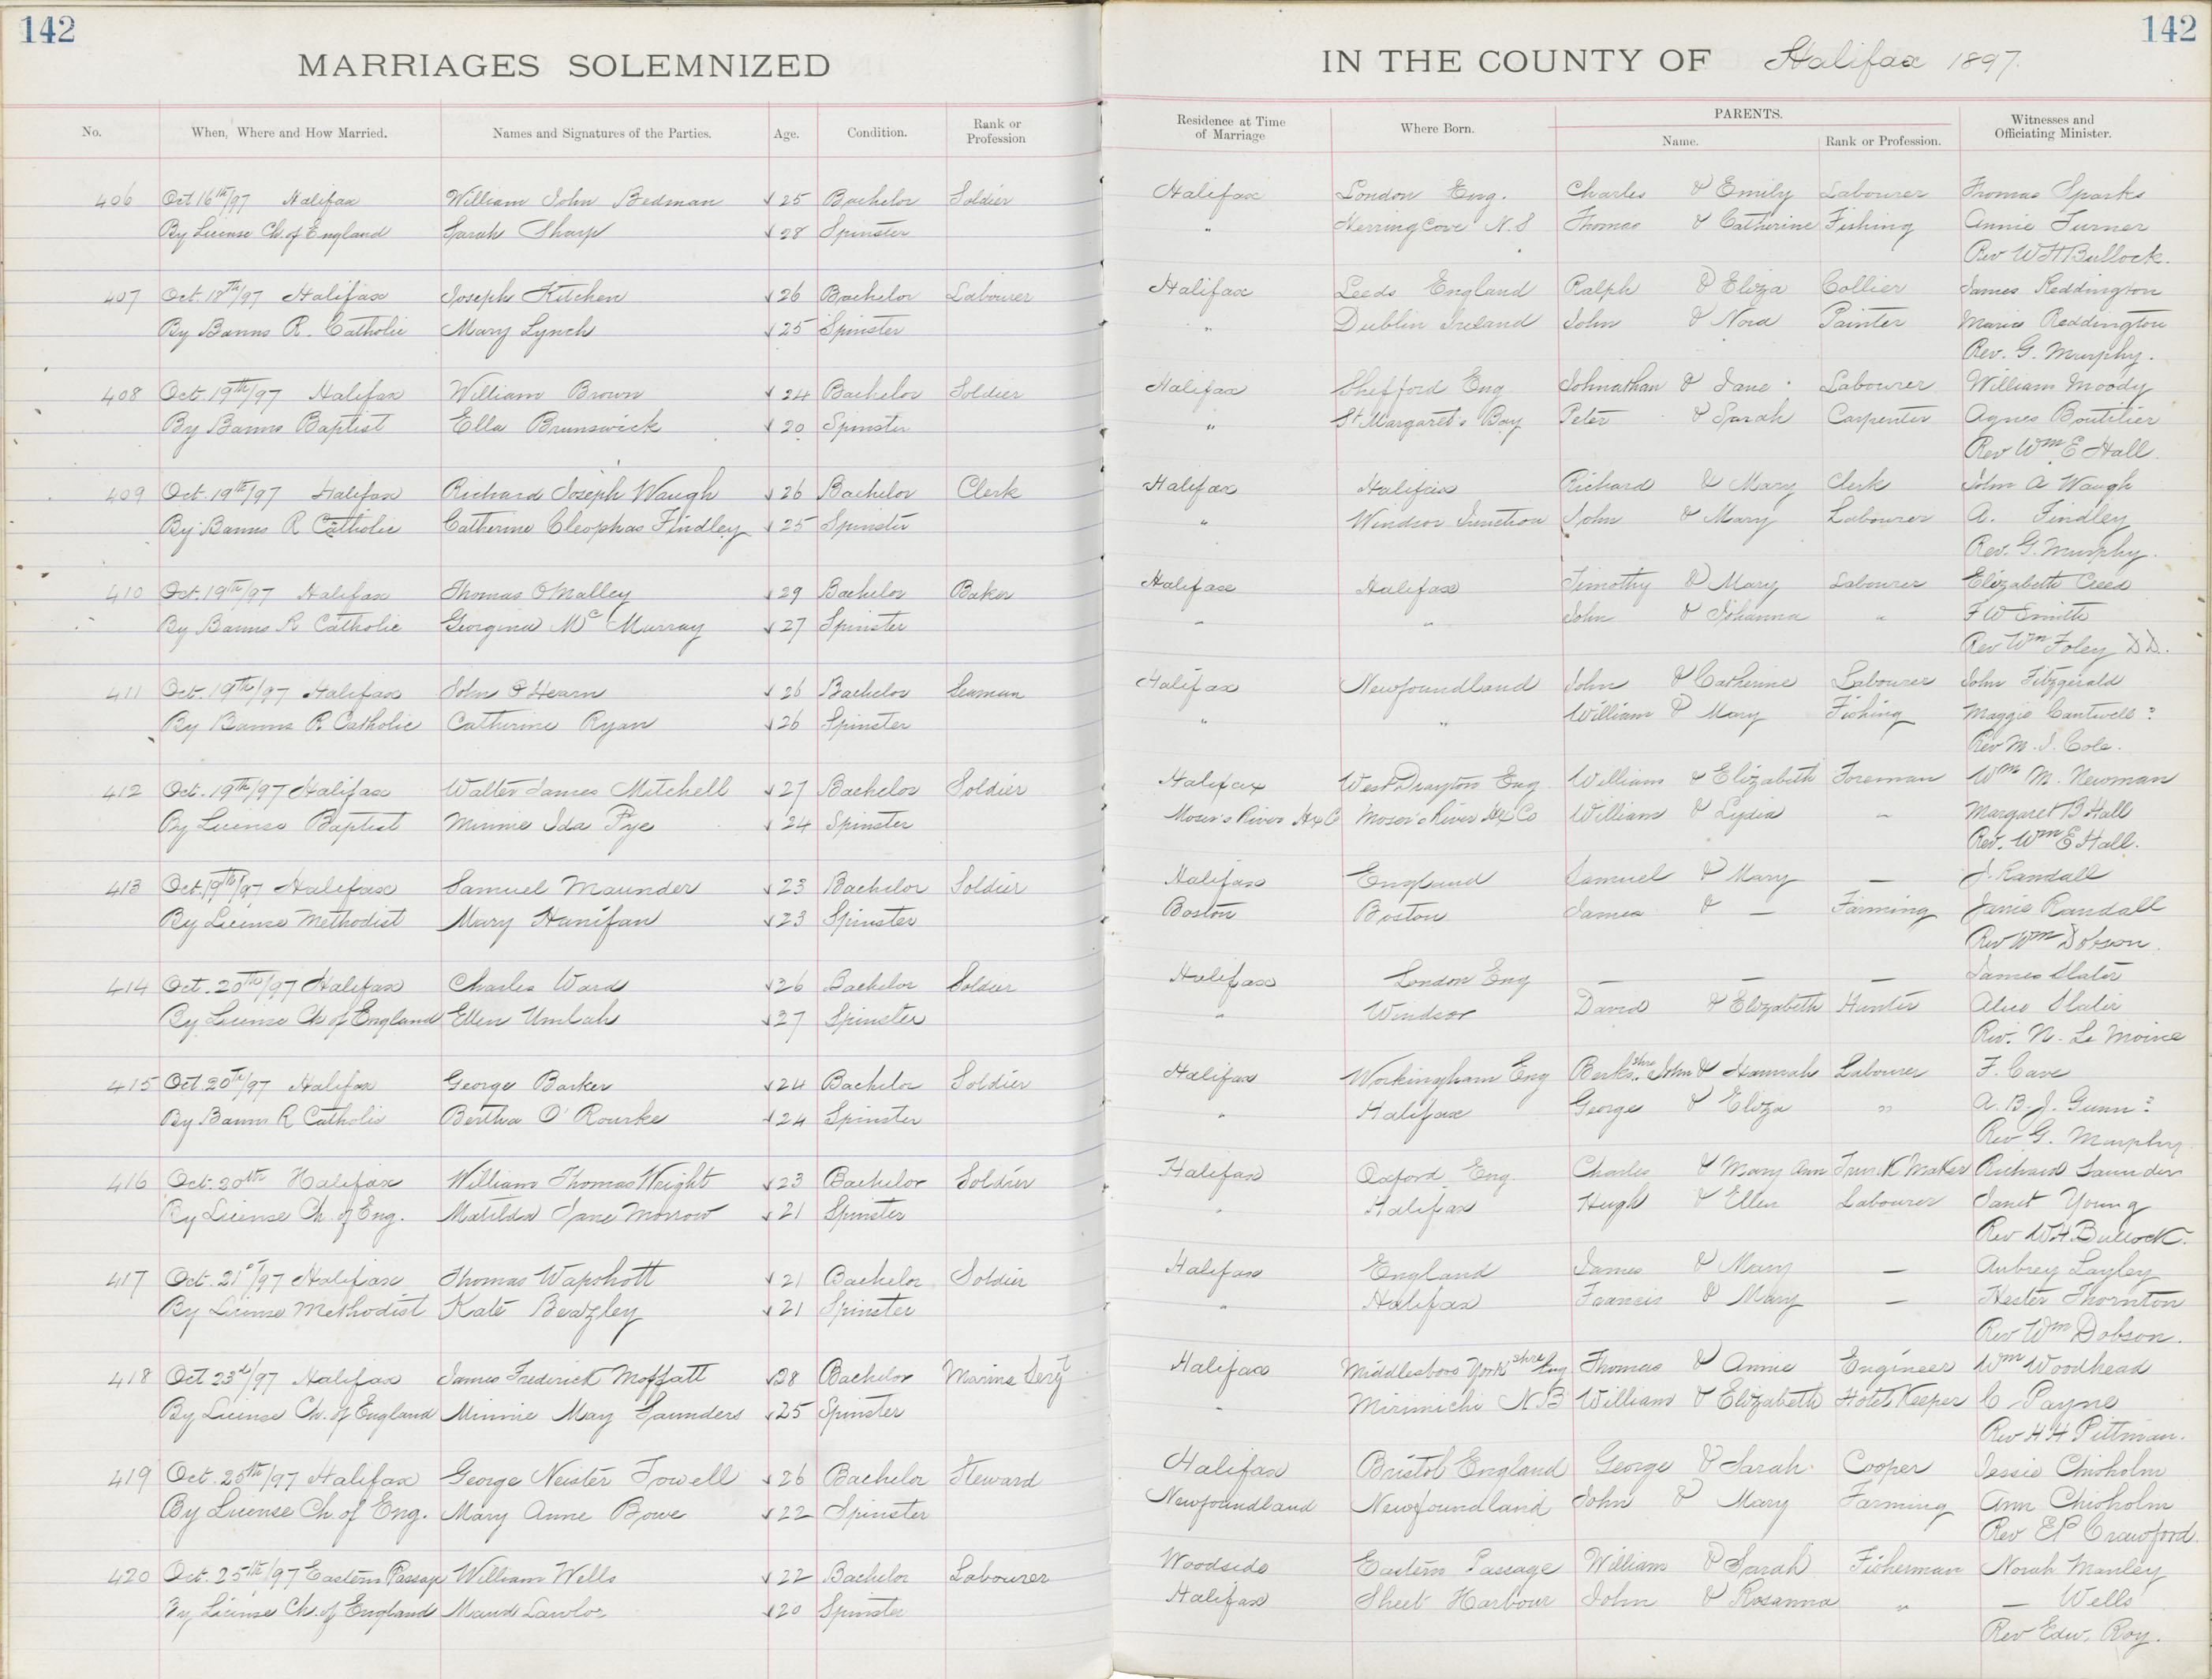 142
MARRIAGES SOLEMNIZED
IN THE COUNTY OF Halifax 1897.
142
No. When, Where and How Married. Names and Signatures of the Parties. Age. Condition. Rank or Profession Residence at Time of Marriage Where Born. PARENTS. Name. Rank or Profession. Witnesses and Officiating Minister.
406 Oct 16th/97 Halifax William John Bedman 25 Bachelor Soldier Halifax London Eng. Charles & Emily Labourer Thomas Sparks
By License Ch. of England Sarah Sharp 28 Spinster " Herring Cove N.S Thomas & Catherine Fishing Annie Turner
Rev W H Bullock.
407 Oct. 18th/97 Halifax Joseph Kitchen 26 Bachelor Labourer Halifax Leeds England Ralph & Eliza Collier James Reddington
By Banns R. Catholic Mary Lynch 25 Spinster " Dublin Ireland John & Nora Painter Maria Reddington
Rev. G. Murphy.
408 Oct. 19th/97 Halifax William Brown 24 Bachelor Soldier Halifax Shefford Eng Johnathan & Jane Labourer William Moody
By Banns Baptist Ella Brunswick 20 Spinster " St Margaret's Bay Peter & Sarah Carpenter Agnes Boutilier
Rev Wm E Hall.
409 Oct. 19th/97 Halifax Richard Joseph Waugh 26 Bachelor Clerk Halifax Halifax Richard & Mary Clerk John A Waugh
By Banns R Catholic Catherine Cleophas Findley 25 Spinster " Windsor Junction John & Mary Labourer A. Findley
Rev. G. Murphy.
410 Oct. 19th/97 Halifax Thomas O'Malley 29 Bachelor Baker Halifax Halifax Timothy & Mary Labourer Elizabeth Creed
By Banns R Catholic Georgina Mc Murray 27 Spinster " " John & Johanna " F W Smith
Rev Wm Foley D.D.
411 Oct. 19th/97 Halifax John O'Hearn 26 Bachelor Seaman Halifax Newfoundland John & Catherine Labourer John Fitzgerald
By Banns R. Catholic Catherine Ryan 26 Spinster " " William & Mary Fishing Maggie Cantwell ?
Rev M. J. Cole.
412 Oct. 19th/97 Halifax Walter James Mitchell 27 Bachelor Soldier Halifax West Drayton Eng William & Elizabeth Foreman Wm M. Newman
By License Baptist Minnie Ida Pye 24 Spinster Moser's River Hx C Moser's River Hx Co William & Lydia " Margaret B Hall
Rev. Wm E Hall.
413 Oct. 19th/97 Halifax Samuel Maunder 23 Bachelor Soldier Halifax England Samuel & Mary — J. Randall
By License Methodist Mary Hanifan 23 Spinster Boston Boston James & — Farming Janie Randall
Rev Wm Dobson.
414 Oct. 20th/97 Halifax Charles Ward 26 Bachelor Soldier Halifax London Eng — — — James Slater
By License Ch of England Ellen Umlah 27 Spinster " Windsor David & Elizabeth Hunter Alice Slater
Rev. N. Le Moine
415 Oct. 20th/97 Halifax George Barker 24 Bachelor Soldier Halifax Workingham Eng Berks.shire John & Hannah Labourer F. Cave
By Banns R Catholic Bertha O'Rourke 24 Spinster " Halifax George & Eliza " A. B. J. Gunn ?
Rev G. Murphy
416 Oct. 20th Halifax William Thomas Wright 23 Bachelor Soldier Halifax Oxford Eng. Charles & Mary Ann Trunk Maker Richard Saunders
By License Ch. of Eng. Matilda Jane Morrow 21 Spinster " Halifax Hugh & Ellen Labourer Janet Young
Rev W.H. Bullock.
417 Oct. 21st/97 Halifax Thomas Wapshott 21 Bachelor Soldier Halifax England James & Mary — Aubrey Layley
By License Methodist Kate Beazley 21 Spinster " Halifax Francis & Mary — Hester Thornton
Rev Wm Dobson.
418 Oct 23d/97 Halifax James Frederick Moffatt 28 Bachelor Marine Sergt Halifax Middlesboro Yorkshire Eng Thomas & Annie Engineer Wm Woodhead
By License Ch. of England Minnie May Saunders 25 Spinster " Mirimichi N B William & Elizabeth Hotel Keeper C Payne
Rev H H Pittman.
419 Oct. 25th/97 Halifax George Neister Towell 26 Bachelor Steward Halifax Bristol England George & Sarah Cooper Jessie Chisholm
By License Ch. of Eng. Mary Anne Bowe 22 Spinster Newfoundland Newfoundland John & Mary Farming Ann Chisholm
Rev E P Crawford.
420 Oct. 25th/97 Eastern Passage William Wells 22 Bachelor Labourer Woodside Eastern Passage William & Sarah Fisherman Norah Manley
By License Ch. of England Maud Lawlor 20 Spinster Halifax Sheet Harbour John & Rosanna " — Wells
Rev Edw. Roy.